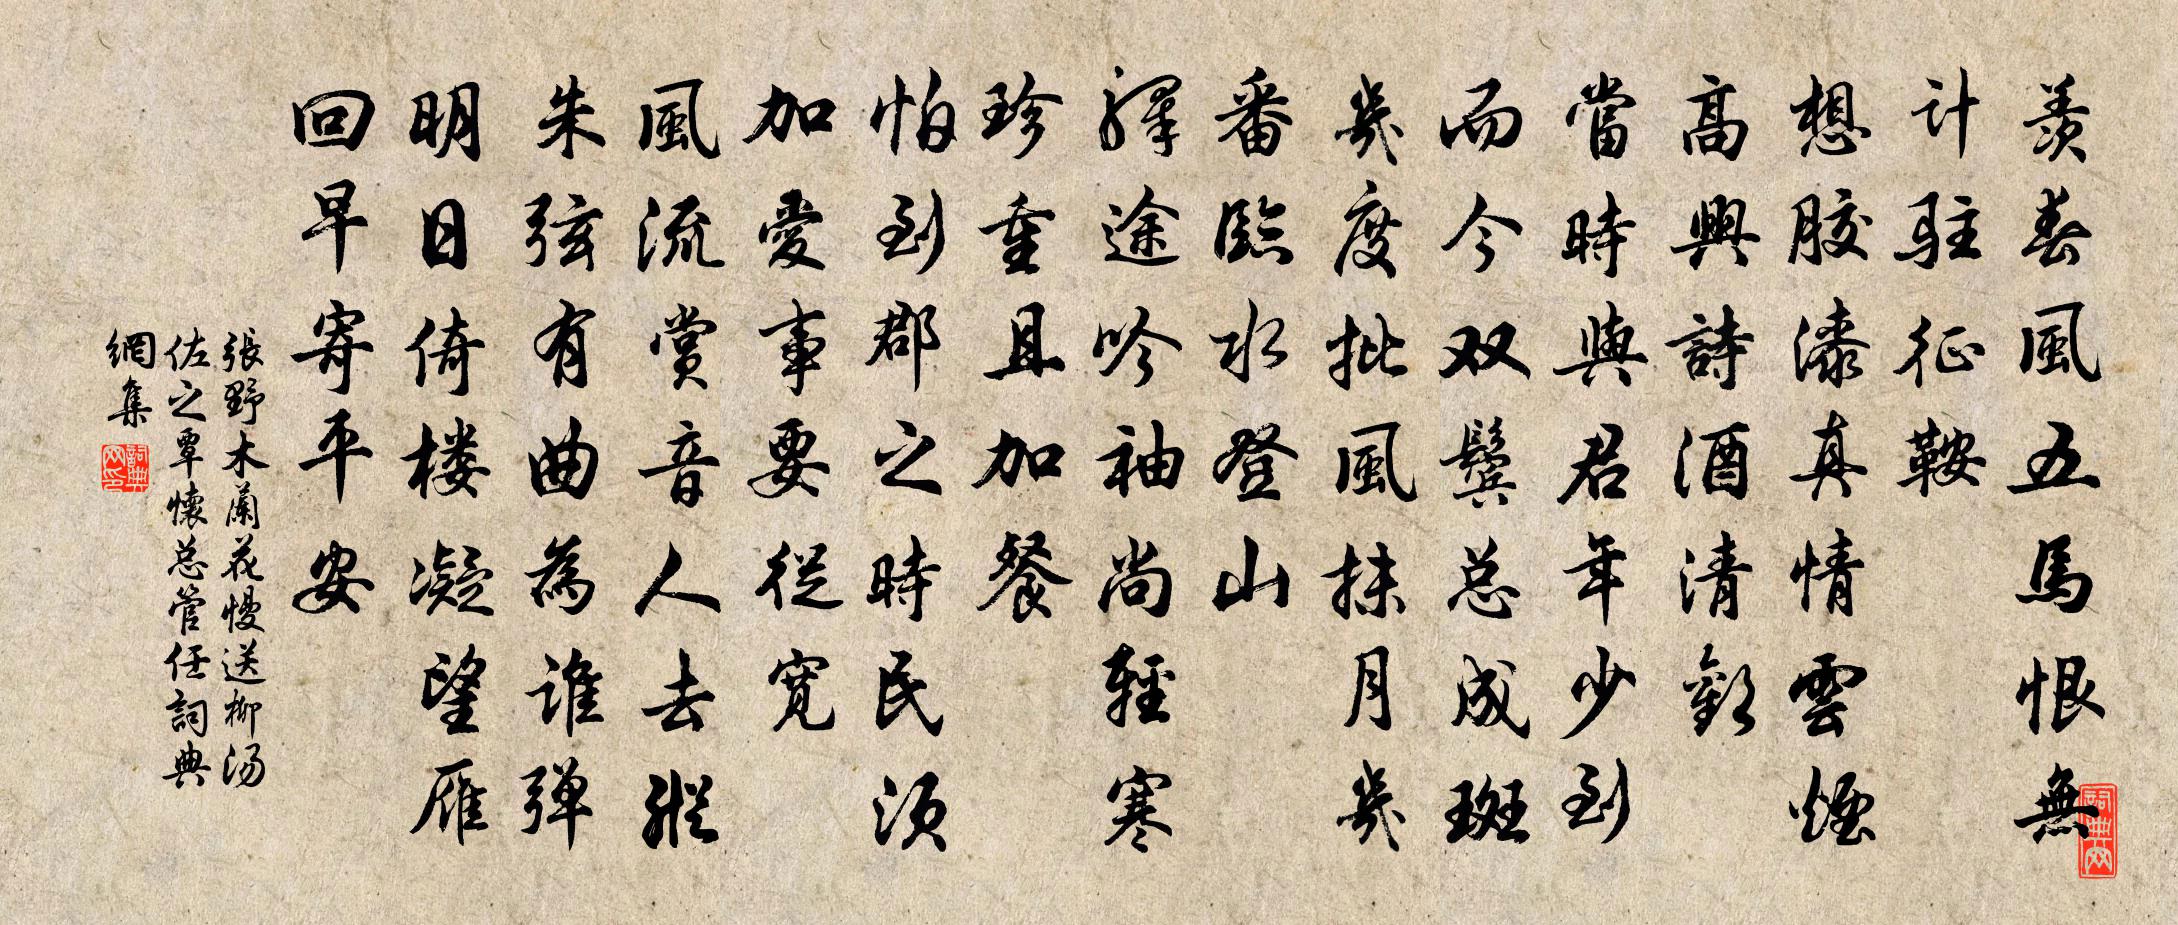 羨春風五馬恨無
计駐征鞍
想膠漆真情雲煙
高興詩酒清歡
當時與君年少到
而今双鬢总成斑
幾度批風抹月幾
番臨水登山
驛途吟袖尚輕寒
珍重且加餐
怕到郡之時民須
加愛事要從寬
風流賞音人去縱
朱弦有曲為誰弹
明日倚楼凝望雁
回早寄平安
張野木蘭花慢送柳汤
佐之覃懷总管任詞典
網集
詞典网印
詞典网